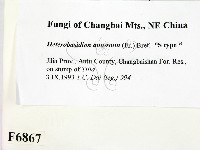 Fungi of Changbai Mts., NE China
Heterobasidion annosum (Fr.) Bref. "S type"
Jilin Prov., Antu County, Changbaishan For. Res.,
on stump of
3.IX.1993 Y.C. Dai
F6867